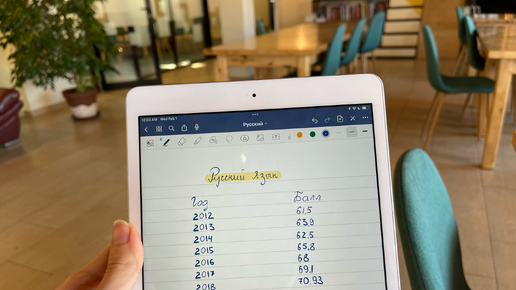 12:00 AM Wed Feb 1
Русский
Русский язык
Год Балл
2012 61.5
2013 63.9
2014 62.5
2015 65.8
2016 68
2017 69.1
2018 70.93